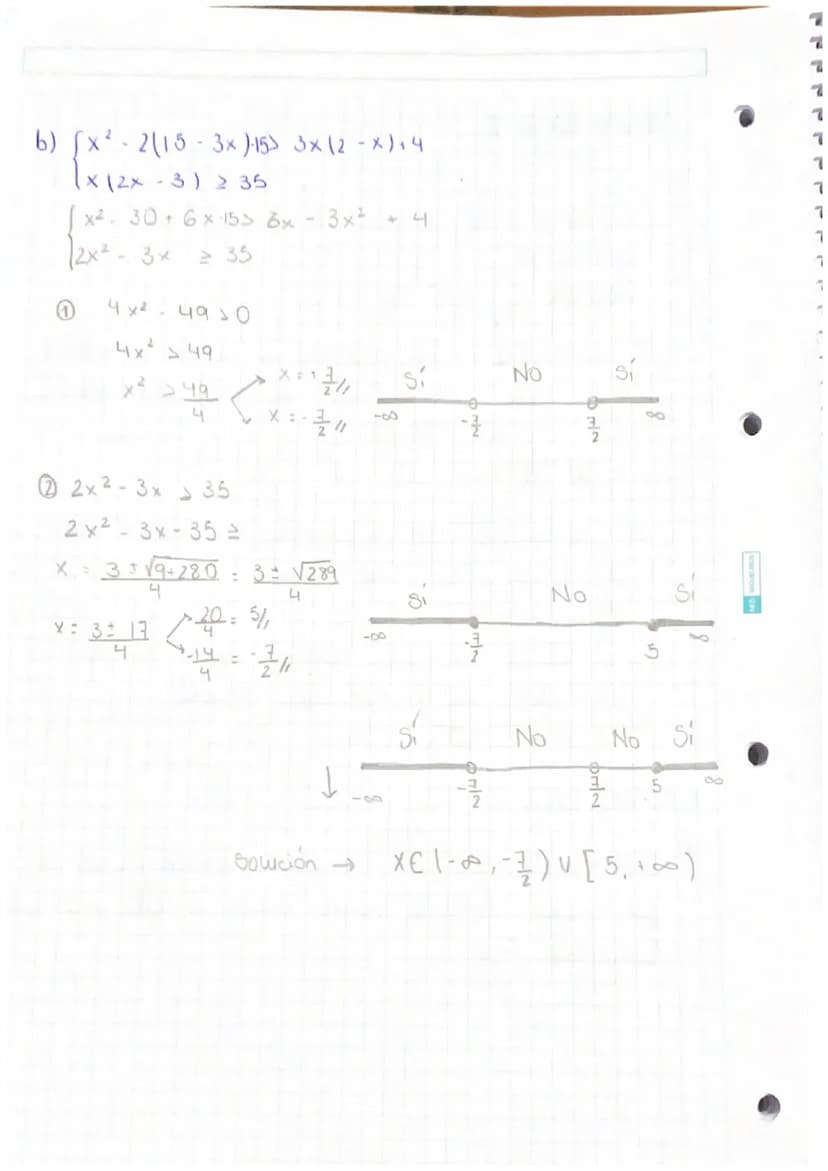 b) { x² - 2(15 - 3x)-15> 3x(2 - x)+4
x(2x - 3) ≥ 35
{ x² - 30 + 6x-15> 6x - 3x² + 4
2x² - 3x ≥ 35
① 4x² - 49>0
4x² > 49
x² > 49/4 x=+7/2// x=-7/2//
Sí No Sí
-∞ -7/2 7/2 ∞
② 2x² - 3x > 35
2x² - 3x - 35 ≥
x = 3±√9+280/4 = 3±√289/4
x = 3±17/4 20/4 = 5// -14/4 = -7/2//
Sí No Sí
-∞ -7/2 5 ∞
Sí No No Sí
↓ -∞ -7/2 7/2 5 ∞
Solución → x∈(-∞,-7/2)∪[5,+∞)